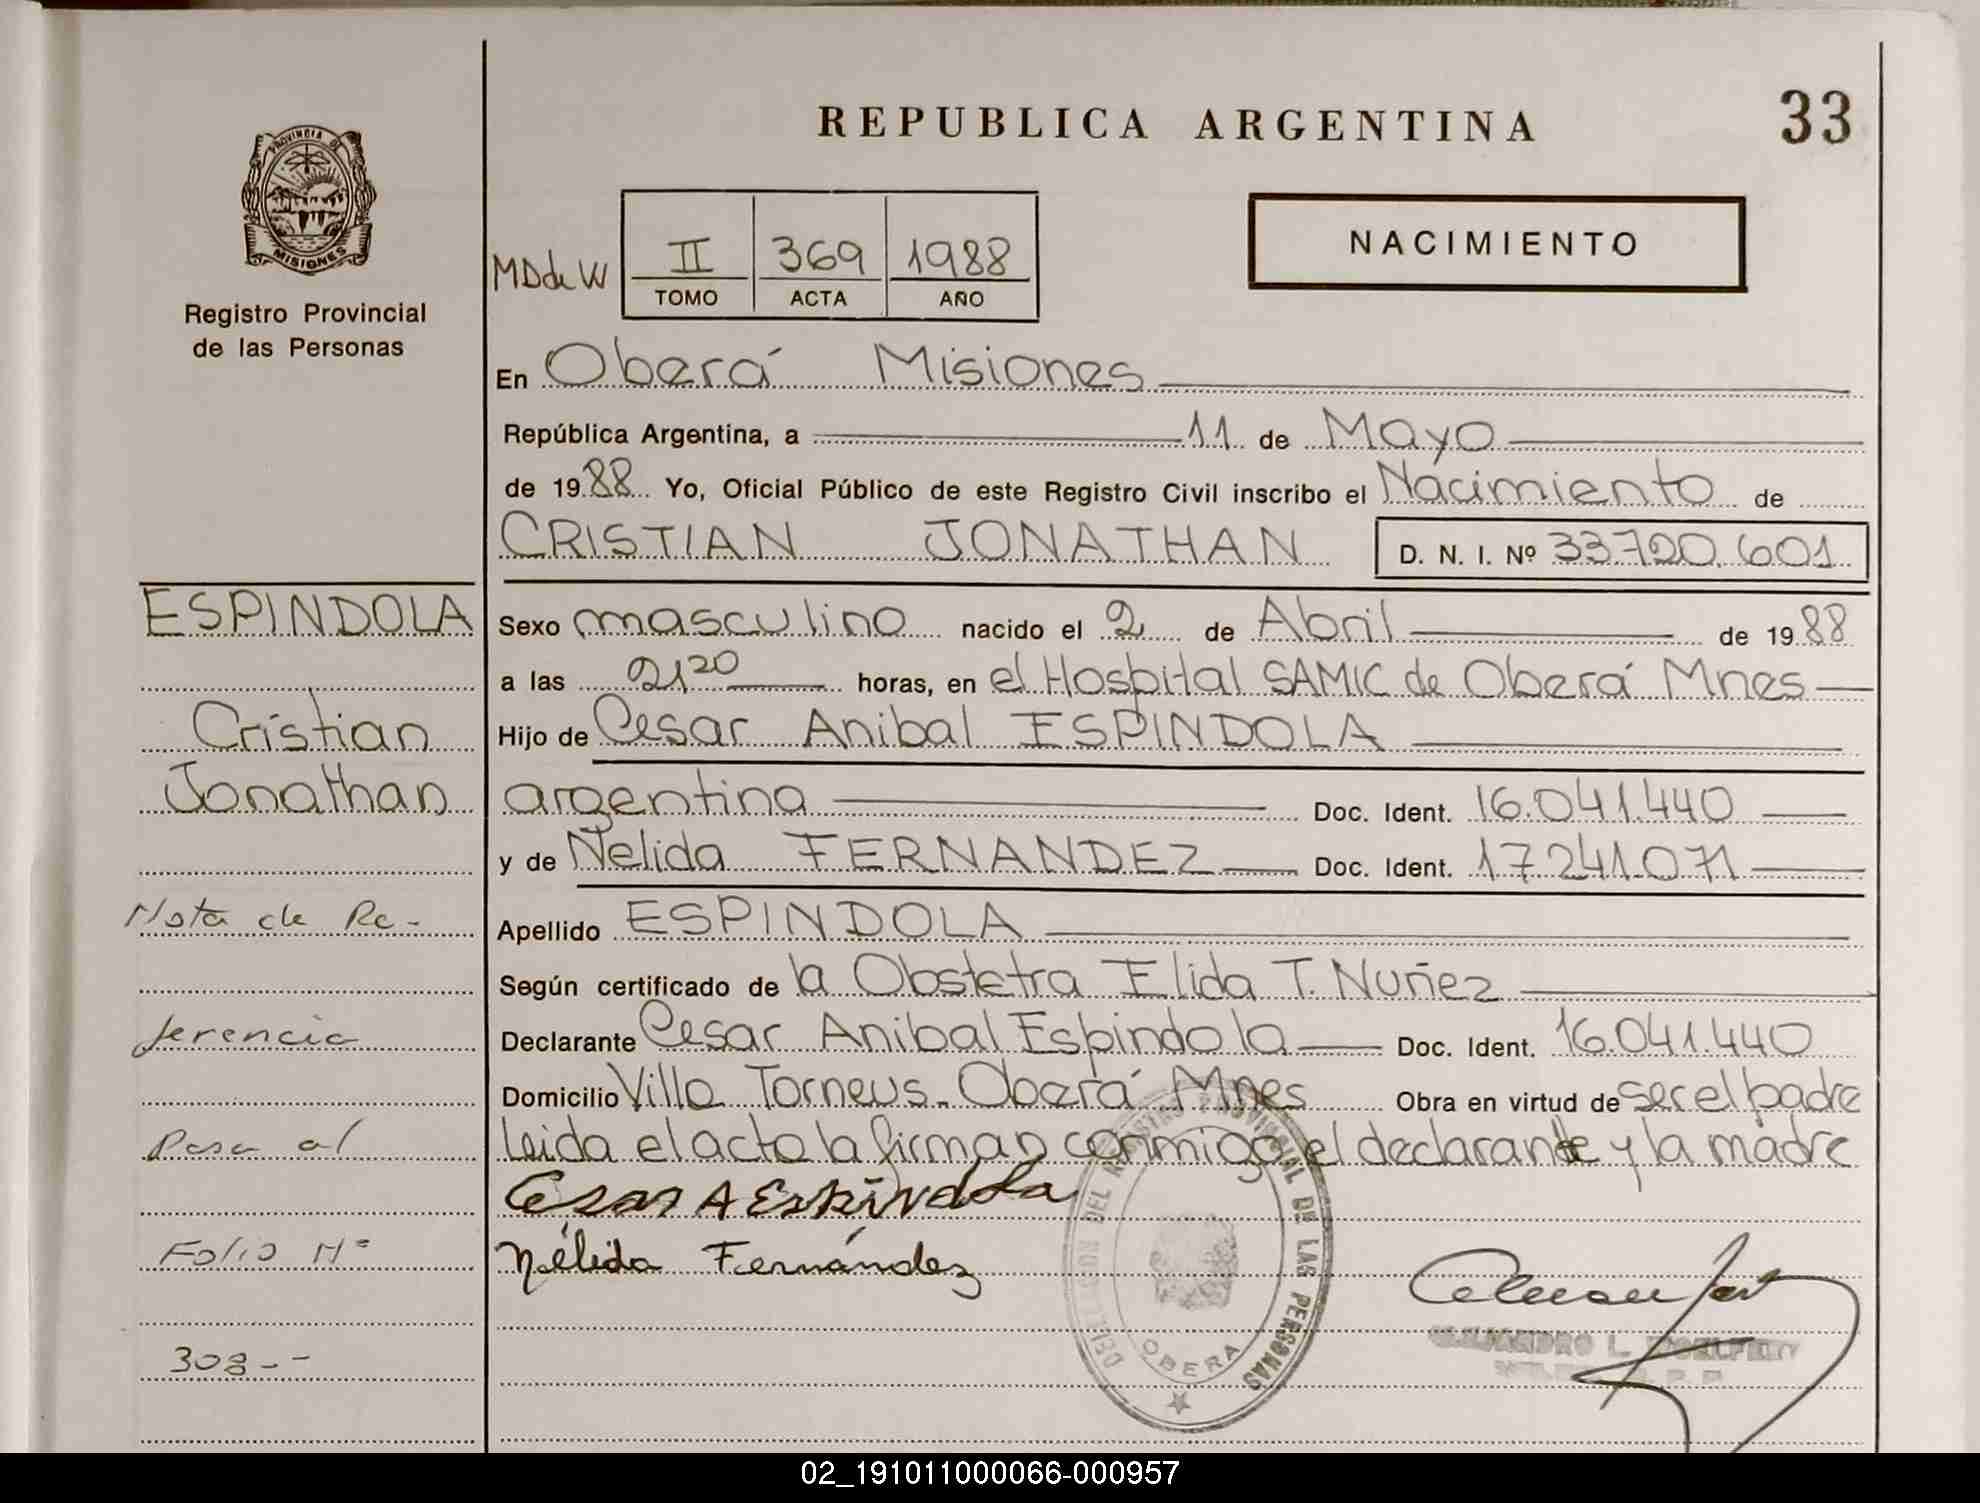 REPUBLICA ARGENTINA
33
PROVINCIA DE
MISIONES
Registro Provincial
de las Personas
MD de W
II 369 1988
TOMO ACTA AÑO
NACIMIENTO
En Oberá Misiones
República Argentina, a 11 de Mayo
de 1988 Yo, Oficial Público de este Registro Civil inscribo el Nacimiento de
CRISTIAN JONATHAN D. N. I. Nº 33720.601
ESPINDOLA
Cristian
Jonathan
Nota de Re-
ferencia
Pasa al
Folio Nº
308--
Sexo masculino nacido el 2 de Abril de 1988
a las 21,20 horas, en el Hospital SAMIC de Oberá Mnes
Hijo de Cesar Anibal ESPINDOLA
argentina Doc. Ident. 16.041.440
y de Nelida FERNANDEZ Doc. Ident. 17241.071
Apellido ESPINDOLA
Según certificado de la Obstetra Elida T. Nuñez
Declarante Cesar Anibal Espindola Doc. Ident. 16.041.440
Domicilio Villa Torneus. Oberá Mnes Obra en virtud de ser el padre
Leida el acta la firman conmigo el declarante y la madre
Cesar A Espindola
Nélida Fernández
DELEGACION DEL REGISTRO PROVINCIAL DE LAS PERSONAS
OBERA
02_191011000066-000957